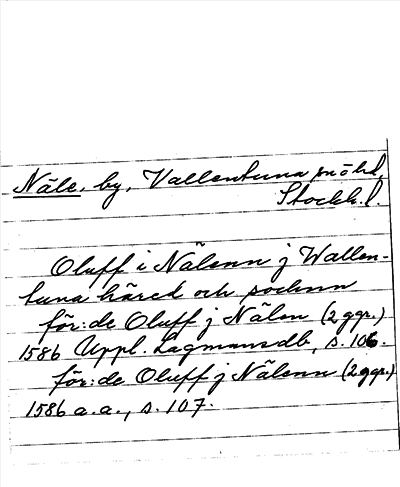 Näle, by, Vallentuna sn o hd,
Stockh. l.
Oluff i Nälenn j Wallen-
tuna häred och sochnn
för:de Oluff j Nälen (2 ggr.)
1586 Uppl. Lagmansdb, s. 106.
för:de Oluff j Nälenn (2 ggr.)
1586 a.a., s. 107.